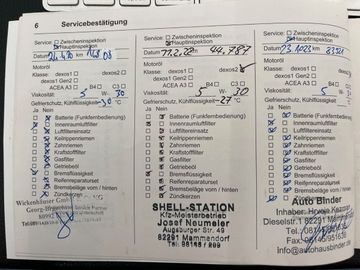 6 Servicebestätigung
Service: Zwischeninspektion
Hauptinspektion
Datum km
Motoröl
Klasse: dexos1 dexos2
dexos1 Gen2
ACEA A3 B4 C3
Viskosität: 5 W- 30
Gefrierschutz, Kühlflüssigkeit -30 °C
Ja Nein
Batterie (Funkfernbedienung)
Innenraumluftfilter
Luftfiltereinsatz
Keilrippenriemen
Zahnriemen
Kraftstofffilter
Gasfilter
Getriebeöl
Bremsflüssigkeit
Reifenreparaturset
Bremsbeläge vorn / hinten
Zündkerzen
Wickenhäuser GmbH
Service: Zwischeninspektion
Hauptinspektion
Datum 11.2.22 km 44.787
Motoröl
Klasse: dexos1 dexos2
dexos1 Gen2
ACEA A3 B4 C3
Viskosität: 5 W- 30
Gefrierschutz, Kühlflüssigkeit -27 °C
Ja Nein
Batterie (Funkfernbedienung)
Innenraumluftfilter
Luftfiltereinsatz
Keilrippenriemen
Zahnriemen
Kraftstofffilter
Gasfilter
Getriebeöl
Bremsflüssigkeit
Reifenreparaturset
Bremsbeläge vorn / hinten
Zündkerzen
SHELL-STATION
Kfz-Meisterbetrieb
Josef Neumeier
Augsburger Str. 49
82291 Mammendorf
Tel. 08145 / 999
Service: Zwischeninspektion
Hauptinspektion
Datum km
Motoröl
Klasse: dexos1 dexos2
dexos1 Gen2
ACEA A3 B4 C3
Viskosität: 5 W- 30
Gefrierschutz, Kühlflüssigkeit °C
Ja Nein
Batterie (Funkfernbedienung)
Innenraumluftfilter
Luftfiltereinsatz
Keilrippenriemen
Zahnriemen
Kraftstofffilter
Gasfilter
Getriebeöl
Bremsflüssigkeit
Reifenreparaturset
Bremsbeläge vorn / hinten
Auto Binder
Inhaber:
Dieselstr.1
Tel.
Fax:
info@autohausbinder